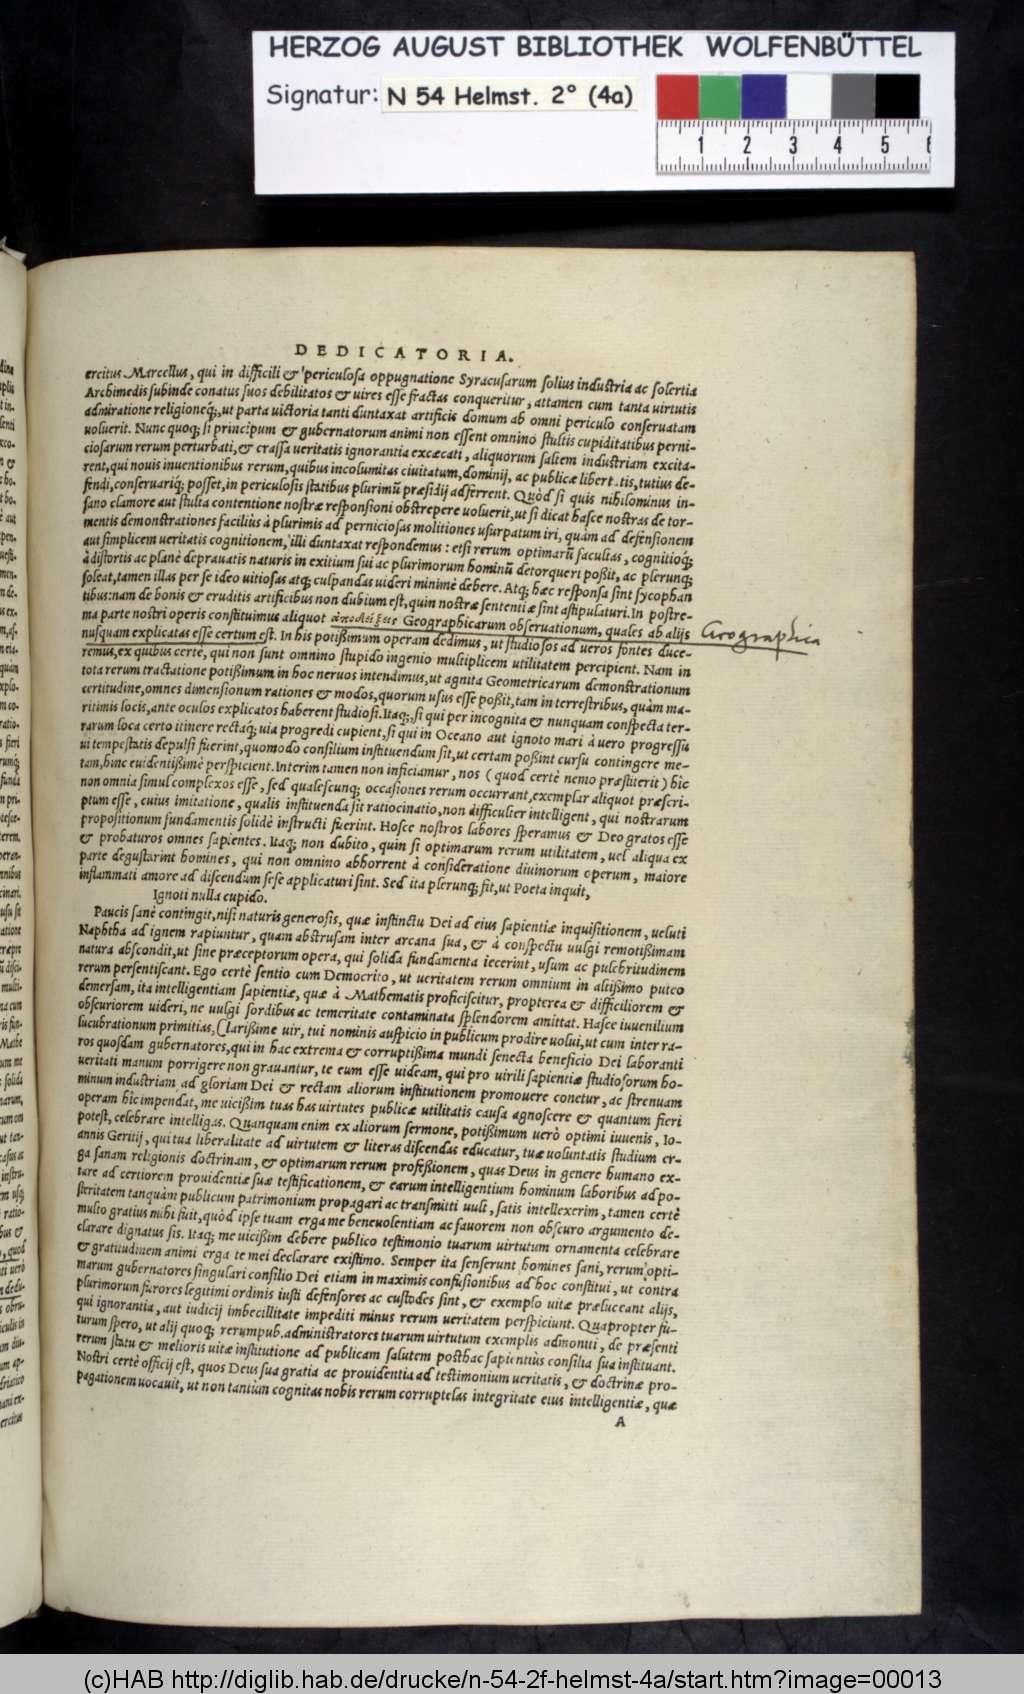 HERZOG AUGUST BIBLIOTHEK WOLFENBÜTTEL
Signatur: N 54 Helmst. 2° (4a)
1 2 3 4 5 6
DEDICATORIA.
ercitus Marcellus, qui in difficili & periculosa oppugnatione Syracusarum solius industria ac solertia
Archimedis subinde conatus suos debilitatos & uires esse fractas conqueritur, attamen cum tanta uirtutis
admiratione religioneq́;, ut parta uictoria tanti duntaxat artificis domum ab omni periculo conseruatam
uoluerit. Nunc quoq; si principum & gubernatorum animi non essent omnino stultis cupiditatibus perni-
ciosarum rerum perturbati, & crassa ueritatis ignorantia excæcati, aliquorum saltem industriam excita-
rent, qui nouis inuentionibus rerum, quibus incolumitas ciuitatum, dominij, ac publicæ libert tis, tutius de-
fendi, conseruariq́; posset, in periculosis statibus plurimũ præsidij adferrent. Quòd si quis nihilominus in-
sano clamore aut stulta contentione nostræ responsioni obstrepere uoluerit, ut si dicat hasce nostras de tor-
mentis demonstrationes facilius à plurimis ad perniciosas molitiones usurpatum iri, quàm ad defensionem
aut simplicem ueritatis cognitionem, illi duntaxat respondemus: etsi rerum optimarũ facultas, cognitioq́;
à distortis ac planè deprauatis naturis in exitium sui ac plurimorum hominũ detorqueri poßit, ac plerunq;
soleat, tamen illas per se ideo uitiosas atq; culpandas uideri minimè debere. Atq; hæc responsa sint sycophan
tibus: nam de bonis & eruditis artificibus non dubium est, quin nostræ sententiæ sint astipulaturi. In postre-
ma parte nostri operis constituimus aliquot ἀποδείξεις Geographicarum obseruationum, quales ab alijs
nusquam explicatas esse certum est. In his potißimum operam dedimus, ut studiosos ad ueros fontes duce-
Geographica
remus, ex quibus certè, qui non sunt omnino stupido ingenio multiplicem utilitatem percipient. Nam in
tota rerum tractatione potißimum in hoc neruos intendimus, ut agnita Geometricarum demonstrationum
certitudine, omnes dimensionum rationes & modos, quorum usus esse poßit, tam in terrestribus, quàm ma-
ritimis locis, ante oculos explicatos haberent studiosi. Itaq;, si qui per incognita & nunquam conspecta ter-
rarum loca certo itinere rectaq́; uia progredi cupient, si qui in Oceano aut ignoto mari à uero progressu
ui tempestatis depulsi fuerint, quomodo consilium instituendum sit, ut certam poßint cursu contingere me-
tam, hinc euidentißimè perspicient. Interim tamen non inficiamur, nos (quod certè nemo præstiterit) hic
non omnia simul complexos esse, sed qualescunq; occasiones rerum occurrant, exemplar aliquot præscri-
ptum esse, cuius imitatione, qualis instituenda sit ratiocinatio, non difficulter intelligent, qui nostrarum
propositionum fundamentis solidè instructi fuerint. Hosce nostros labores speramus & Deo gratos esse
& probaturos omnes sapientes. Itaq; non dubito, quin si optimarum rerum utilitatem, uel aliqua ex
parte degustarint homines, qui non omnino abhorrent à consideratione diuinorum operum, maiore
inflammati amore ad discendum sese applicaturi sint. Sed ita plerunq; fit, ut Poeta inquit,
Ignoti nulla cupido.
Paucis sanè contingit, nisi naturis generosis, quæ instinctu Dei ad eius sapientiæ inquisitionem, ueluti
Naphtha ad ignem rapiuntur, quam abstrusam inter arcana sua, & à conspectu uulgi remotißimam
natura abscondit, ut sine præceptorum opera, qui solida fundamenta iecerint, usum ac pulchritudinem
rerum persentiscant. Ego certè sentio cum Democrito, ut ueritatem rerum omnium in altißimo puteo
demersam, ita intelligentiam sapientiæ, quæ à Mathematis proficiscitur, propterea & difficiliorem &
obscuriorem uideri, ne uulgi sordibus ac temeritate contaminata splendorem amittat. Hasce iuuenilium
lucubrationum primitias, Clarißime uir, tui nominis auspicio in publicum prodire uolui, ut cum inter ra-
ros quosdam gubernatores, qui in hac extrema & corruptißima mundi senecta beneficio Dei laboranti
ueritati manum porrigere non grauantur, te eum esse uideam, qui pro uirili sapientiæ studiosorum ho-
minum industriam ad gloriam Dei & rectam aliorum institutionem promouere conetur, ac strenuam
operam hic impendat, me uicißim tuas has uirtutes publicæ utilitatis causa agnoscere & quantum fieri
potest, celebrare intelligas. Quanquam enim ex aliorum sermone, potißimum uerò optimi iuuenis, Io-
annis Geritij, qui tua liberalitate ad uirtutem & literas discendas educatur, tuæ uoluntatis studium er-
ga sanam religionis doctrinam, & optimarum rerum profeßionem, quas Deus in genere humano ex-
tare ad certiorem prouidentiæ suæ testificationem, & earum intelligentium hominum laboribus ad po-
steritatem tanquàm publicum patrimonium propagari ac transmitti uult, satis intellexerim, tamen certè
multo gratius mihi fuit, quòd ipse tuam erga me beneuolentiam ac fauorem non obscuro argumento de-
clarare dignatus sis. Itaq; me uicißim debere publico testimonio tuarum uirtutum ornamenta celebrare
& gratitudinem animi erga te mei declarare existimo. Semper ita senserunt homines sani, rerum opti-
marum gubernatores singulari consilio Dei etiam in maximis confusionibus ad hoc constitui, ut contra
plurimorum furores legitimi ordinis iusti defensores ac custodes sint, & exemplo uitæ præluceant alijs,
qui ignorantia, aut iudicij imbecillitate impediti minus rerum ueritatem perspiciunt. Quapropter fu-
turum spero, ut alij quoq; rerumpub. administratores tuarum uirtutum exemplis admoniti, de præsenti
rerum statu & melioris uitæ institutione ad publicam salutem posthac sapientiùs consilia sua instituant.
Nostri certè officij est, quos Deus sua gratia ac prouidentia ad testimonium ueritatis, & doctrinæ pro-
pagationem uocauit, ut non tantùm cognitas nobis rerum corruptelas integritate eius intelligentiæ, quæ
A
(c)HAB http://diglib.hab.de/drucke/n-54-2f-helmst-4a/start.htm?image=00013